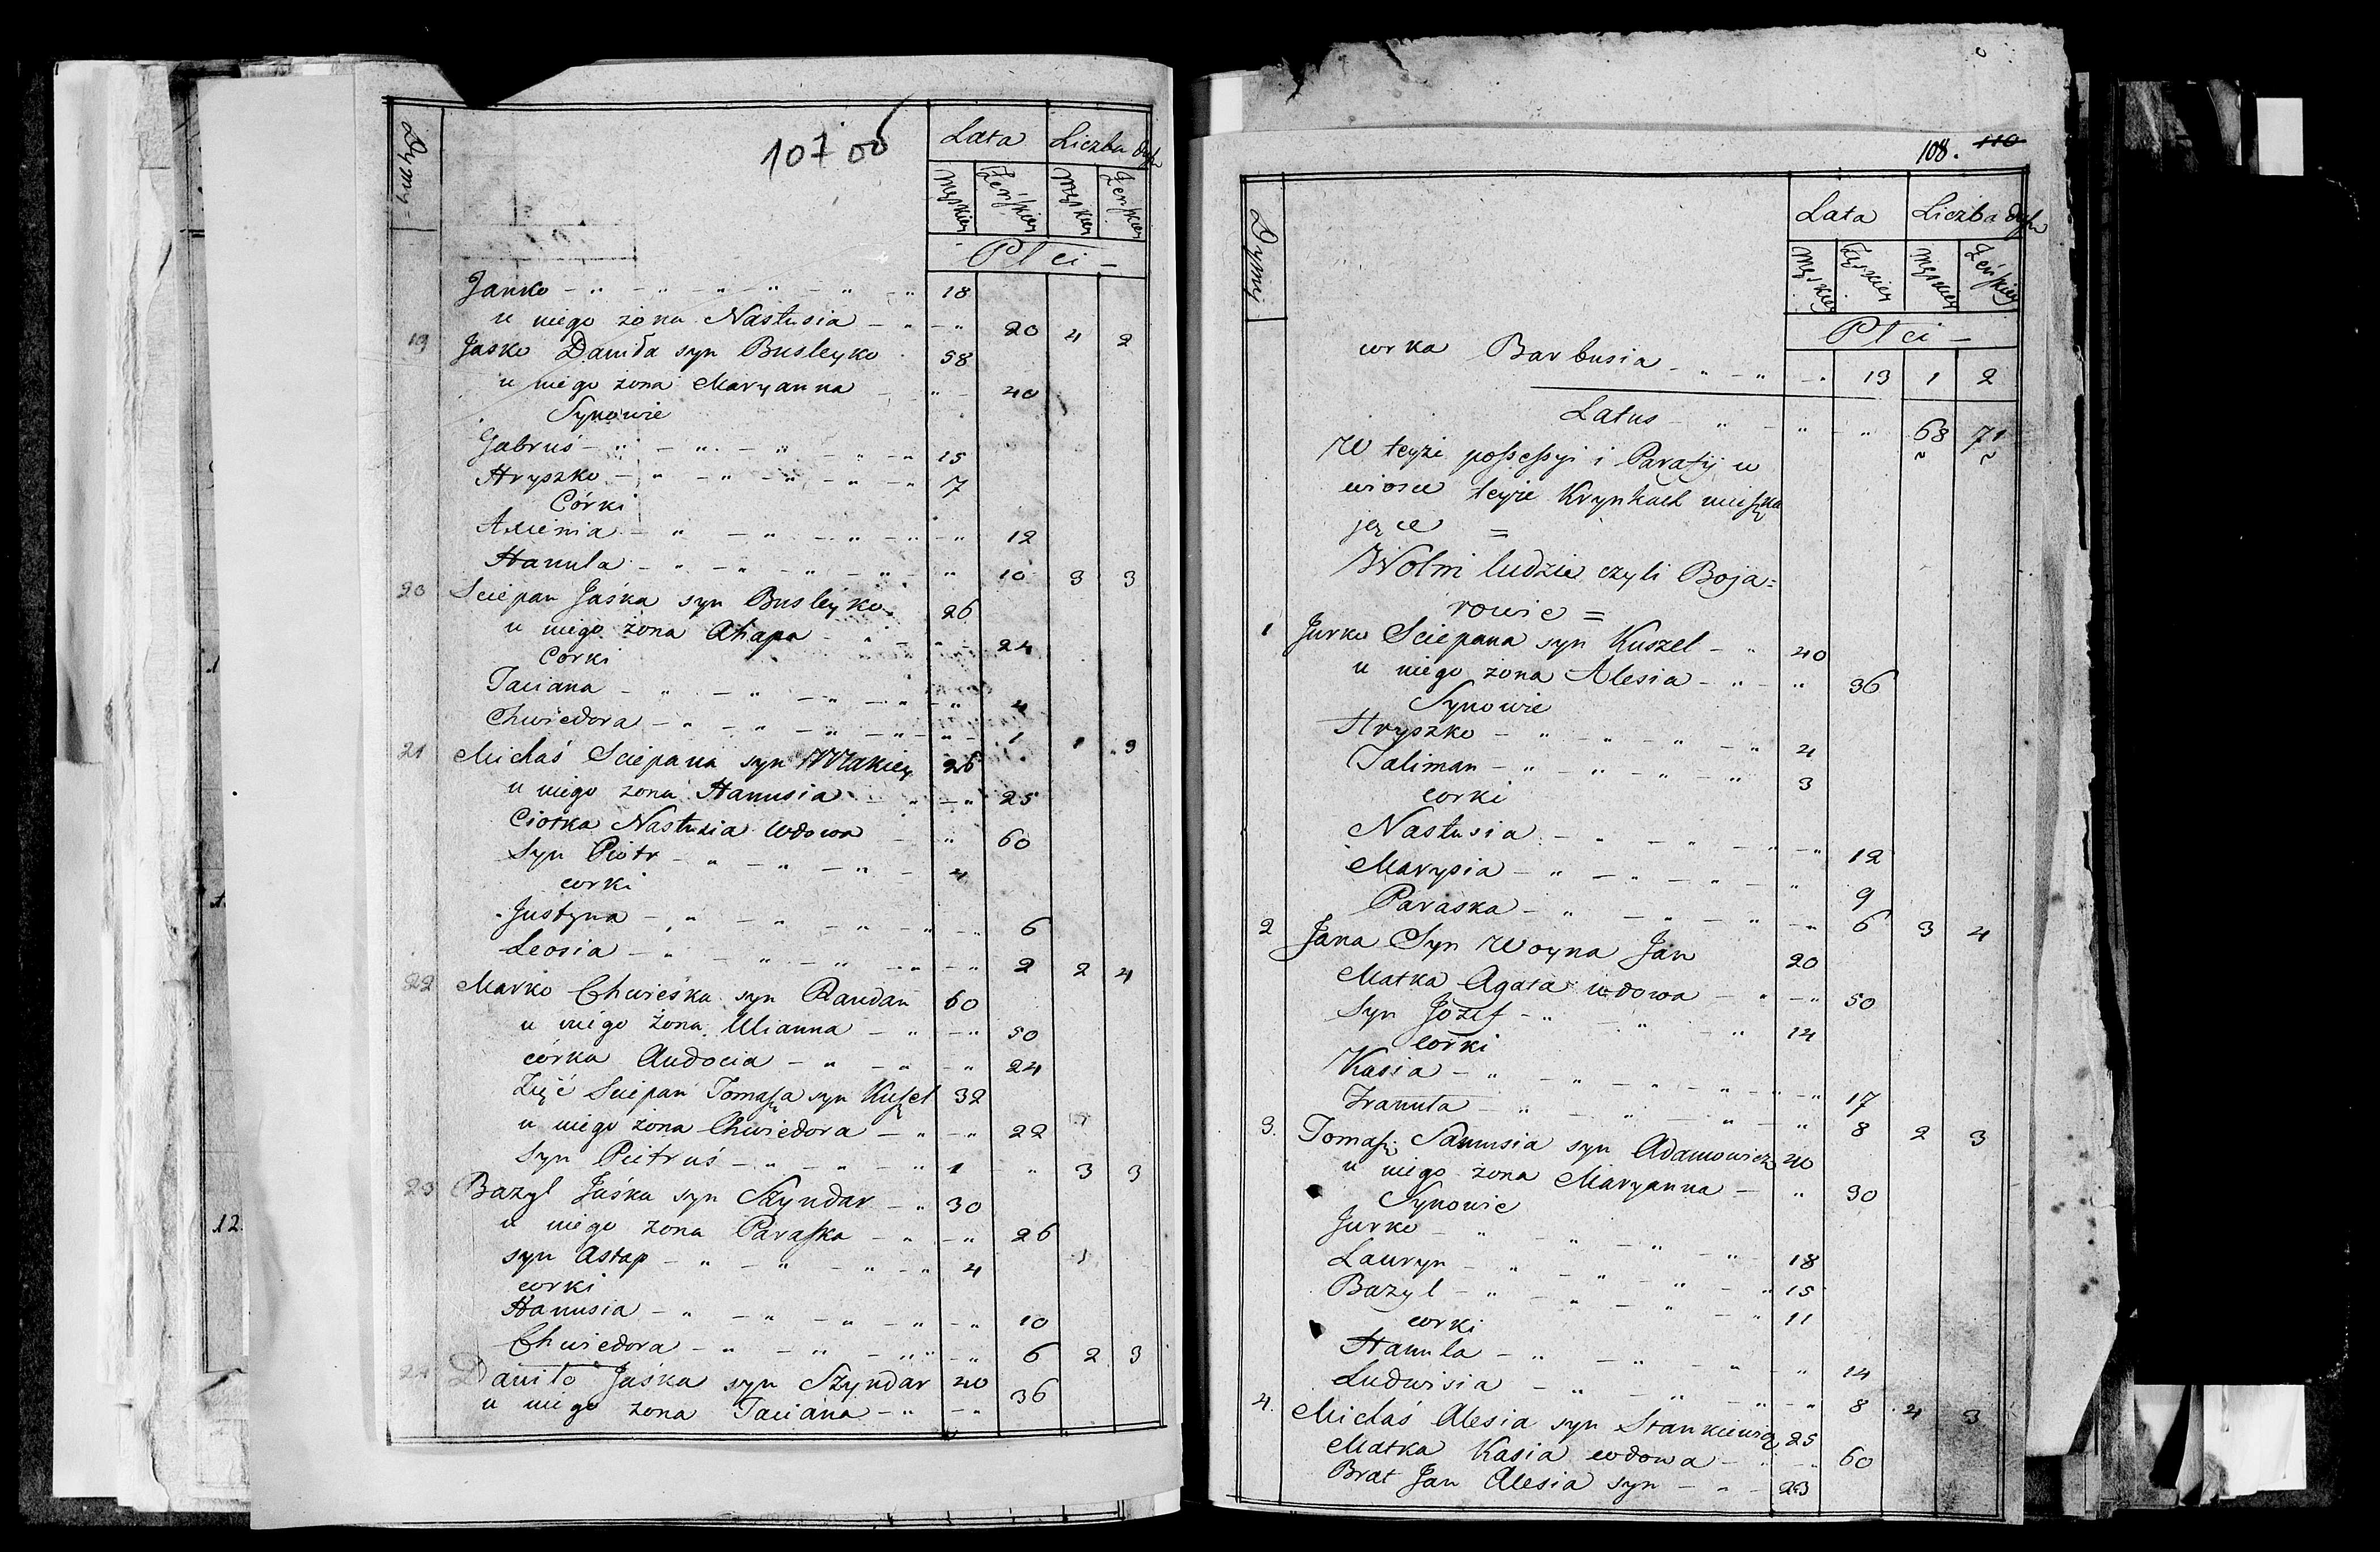 107
Dymy =
Lata
Liczba dusz
Męskiey
Żeńskiey
Męskiey
Żeńskiey
Płci -
Janko - " - " - " - " - " 18
u niego żona Nastusia - " - " 20 4 2
19 Jasko Daniła syn Busleyko 58
u niego żona Maryanna - " - 40
Synowie
Gabruś - " - " - " - " - " 15
Hryszko - " - " - " - " - " 7
Córki
Axienia - " - " - " - " - " 12
Hanula - " - " - " - " - " 10 3 3
20 Sciepan Jaśka syn Busleyko 26
u niego żona Ahapa - " - " - 24
Corki
Taciana - " - " - " - " - " 4
Chwiedora - " - " - " - " - 1 1 3
21 Michaś Sciepana syn Makiey 26
u niego żona Hanusia - " - " 25
Ciotka Nastusia wdowa - " 60
Syn Piotr - " - " - " - 4
corki
Justyna - " - " - " - " - " 6
Leosia - " - " - " - " - " 2 2 4
22 Marko Chwieśka syn Raudan 60
u niego żona Ulianna - " - " 50
córka Audocia - " - " - " 24
Zięć Sciepan Tomasza syn Kuszel 32
u niego żona Chwiedora - " - " 22
Syn Pietruś - " - " - " 1 - " 3 3
23 Bazyl Jaśka syn Szyndar - " 30
u niego żona Paraska - " - " 26
syn Astap - " - " - " - " 4
corki
Hanusia - " - " - " - " - " 10
Chwiedora - " - " - " " - " 6 2 3
24 Daniło Jaśka syn Szyndar 40
u niego żona Taciana - " - " 36
108. 110
Dymy
Lata
Liczba dusz
Męskiey
Żeńskiey
Męskiey
Żeńskiey
Płci -
corka Barbusia - " - " - " 13 1 2
Latus - " - " - " 68 71
W teyże possessyi i Parafij w
wiosce teyże Krynkach mieszka
jące =
Wolni ludzie czyli Boja=
rowie =
1 Jurko Sciepana syn Kuszel - " 40
u niego żona Alesia - " - " 36
Synowie
Hryszko - " - " - " - " 4
Taliman - " - " - " - " 3
corki
Nastusia - " - " - " - " 12
Marysia - " - " - " - " 9
Paraska - " - " - " - " 6 3 4
2 Jana Syn Woyna Jan 20
Matka Agata wdowa - " - " 50
Syn Jozef - " - " - " 14
corki
Kasia - " - " - " - " - " - " 17
Franuta - " - " - " - " 8 2 3
3. Tomasz Samusia syn Adamowicz 40
u niego żona Maryanna - " 30
Synowie
Jurko - " - " - " - " 18
Lauryn - " - " - " - " 15
Bazyl - " - " - " - " 11
corki
Hanula - " - " - " - " 14
Ludwisia - " - " - " - " 8 4 3
4. Michaś Alesia syn Stankiewicz 25
Matka Kasia wdowa - " - " 60
Brat Jan Alesia syn - " - 23